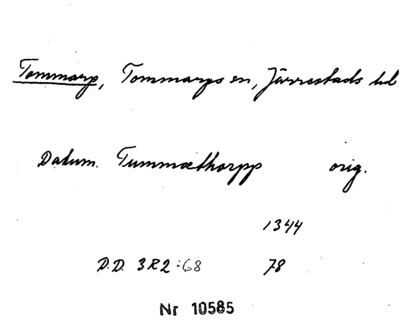 Tommarp, Tommarps sn, Järrestads hd
Datum. Tummæthorpp orig.
1344
D.D. 3R2:68 78
Nr 10585